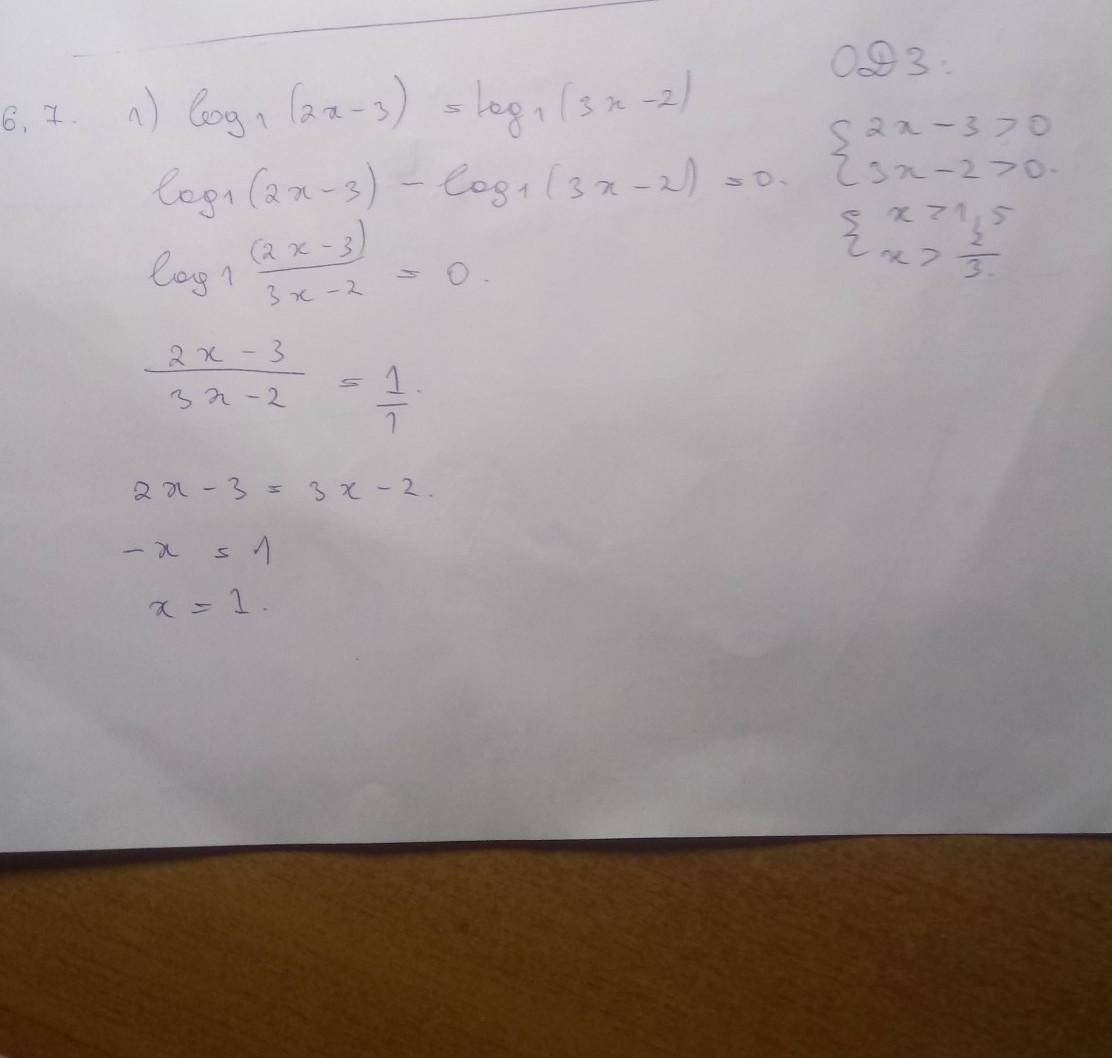 6.7. 1) log₁(2x-3) = log₁(3x-2)
log₁(2x-3) - log₁(3x-2) = 0.
log₁ (2x-3)/3x-2 = 0.
2x-3/3x-2 = 1/1.
2x-3 = 3x-2.
-x = 1
x = 1.
ОДЗ:
{ 2x-3>0
{ 3x-2>0.
{ x>1,5
{ x> 2/3.